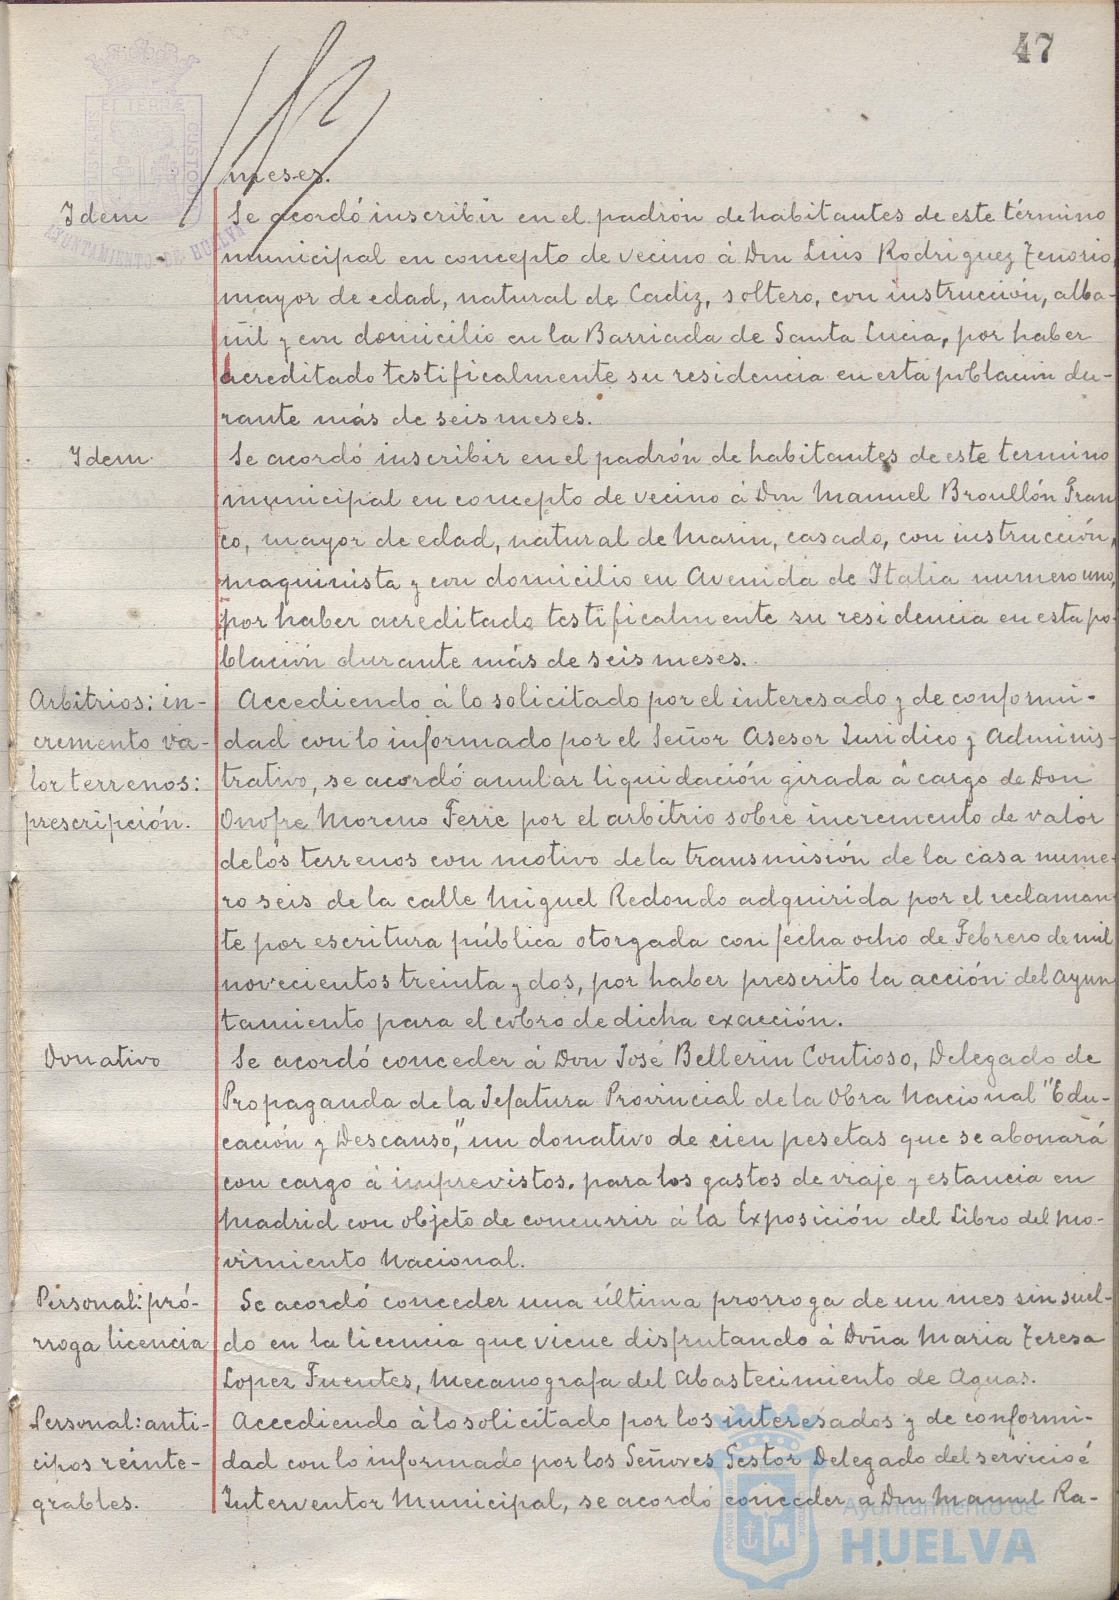 47
meses.
Idem
Se acordó inscribir en el padrón de habitantes de este término
municipal en concepto de vecino á Don Luis Rodriguez Tenorio,
mayor de edad, natural de Cadiz, soltero, con instrucción, alba-
ñil y con domicilio en la Barriada de Santa Lucia, por haber
acreditado testificalmente su residencia en esta población du-
rante más de seis meses.
Idem.
Se acordó inscribir en el padrón de habitantes de este termino
municipal en concepto de vecino á Don Manuel Broullón Fran
co, mayor de edad, natural de Marin, casado, con instrucción,
maquinista y con domicilio en Avenida de Italia numero uno,
por haber acreditado testificalmente su residencia en esta po-
blación durante más de seis meses.
Arbitrios: in-
cremento va-
lor terrenos:
prescripción.
Accediendo á lo solicitado por el interesado y de conformi-
dad con lo informado por el Señor Asesor Juridico y Adminis-
trativo, se acordó anular liquidación girada á cargo de Don
Onofre Moreno Ferre por el arbitrio sobre incremento de valor
de los terrenos con motivo de la transmisión de la casa nume-
ro seis de la calle Miguel Redondo adquirida por el reclaman
te por escritura pública otorgada con fecha ocho de Febrero de mil
novecientos treinta y dos, por haber prescrito la acción del Ayun
tamiento para el cobro de dicha exacción.
Donativo
Se acordó conceder á Don José Bellerin Contioso, Delegado de
Propaganda de la Jefatura Provincial de la Obra Nacional "Edu-
cación y Descanso", un donativo de cien pesetas que se abonará
con cargo á imprevistos. para los gastos de viaje y estancia en
Madrid con objeto de concurrir á la Exposición del Libro del Mo-
vimiento Nacional.
Personal: pró-
rroga licencia
Se acordó conceder una última prorroga de un mes sin suel-
do en la licencia que viene disfrutando á Doña Maria Teresa
Lopez Fuentes, Mecanografa del Abastecimiento de Aguas.
Personal: anti-
cipos reinte-
grables.
Accediendo á lo solicitado por los interesados y de conformi-
dad con lo informado por los Señores Gestor Delegado del servicio é
Interventor Municipal, se acordó conceder á Don Manuel Ra-
AYUNTAMIENTO DE HUELVA
Ayuntamiento de
HUELVA